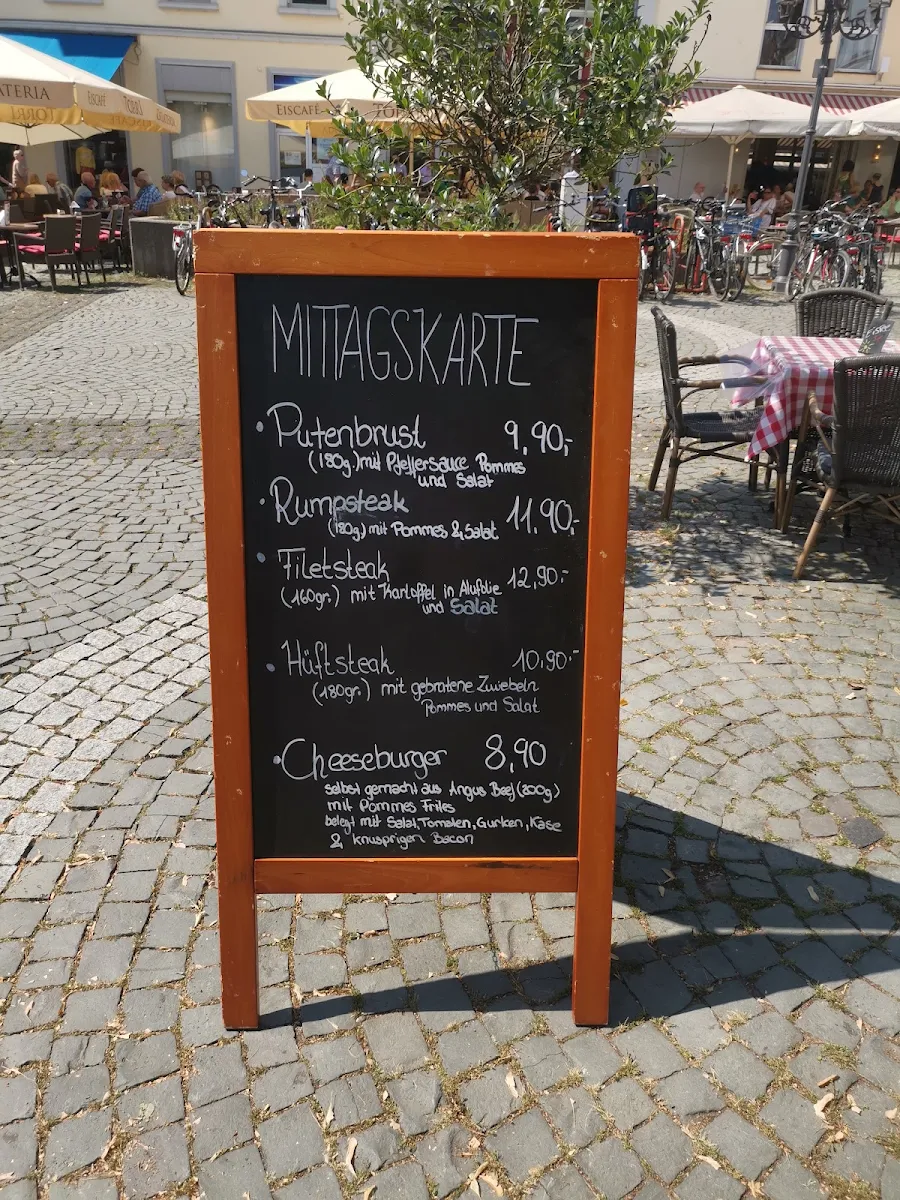 ATERIA
EISCAFÉ
EISCAFÉ
MITTAGSKARTE
• Putenbrust 9,90,-
(180g.) mit Pfeffersauce Pommes
und Salat
• Rumpsteak 11,90,-
(180g) mit Pommes & Salat
• Filetsteak 12,90.-
(160gr.) mit Kartoffel in Alufolie
und Salat
• Hüftsteak 10,90.-
(180gr.) mit gebratene Zwiebeln
Pommes und Salat
• Cheeseburger 8,90
selbst gemacht aus Angus Beef (200g)
mit Pommes Frites
belegt mit Salat, Tomaten, Gurken, Käse
& knusprigen Bacon